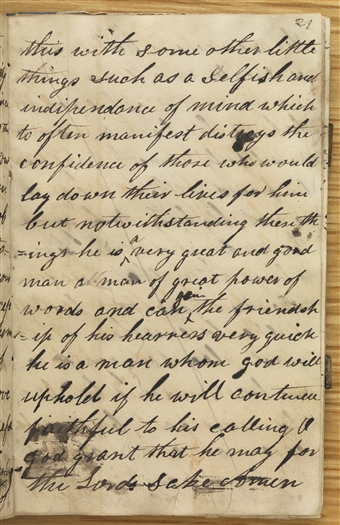 21
this with some other little
things such as a selfish and
indipendance of mind which
to often manifest distroys the
confidence of those who would
lay down their lives for him
but notwithstanding these th
=ings he is a very great and good
man a man of great power of
words and can gain the friendsh
=ip of his hearrers very quick
he is a man whom god will
uphold if he will continue
faithful to his calling O
god grant that he may for
the Lords sake amen